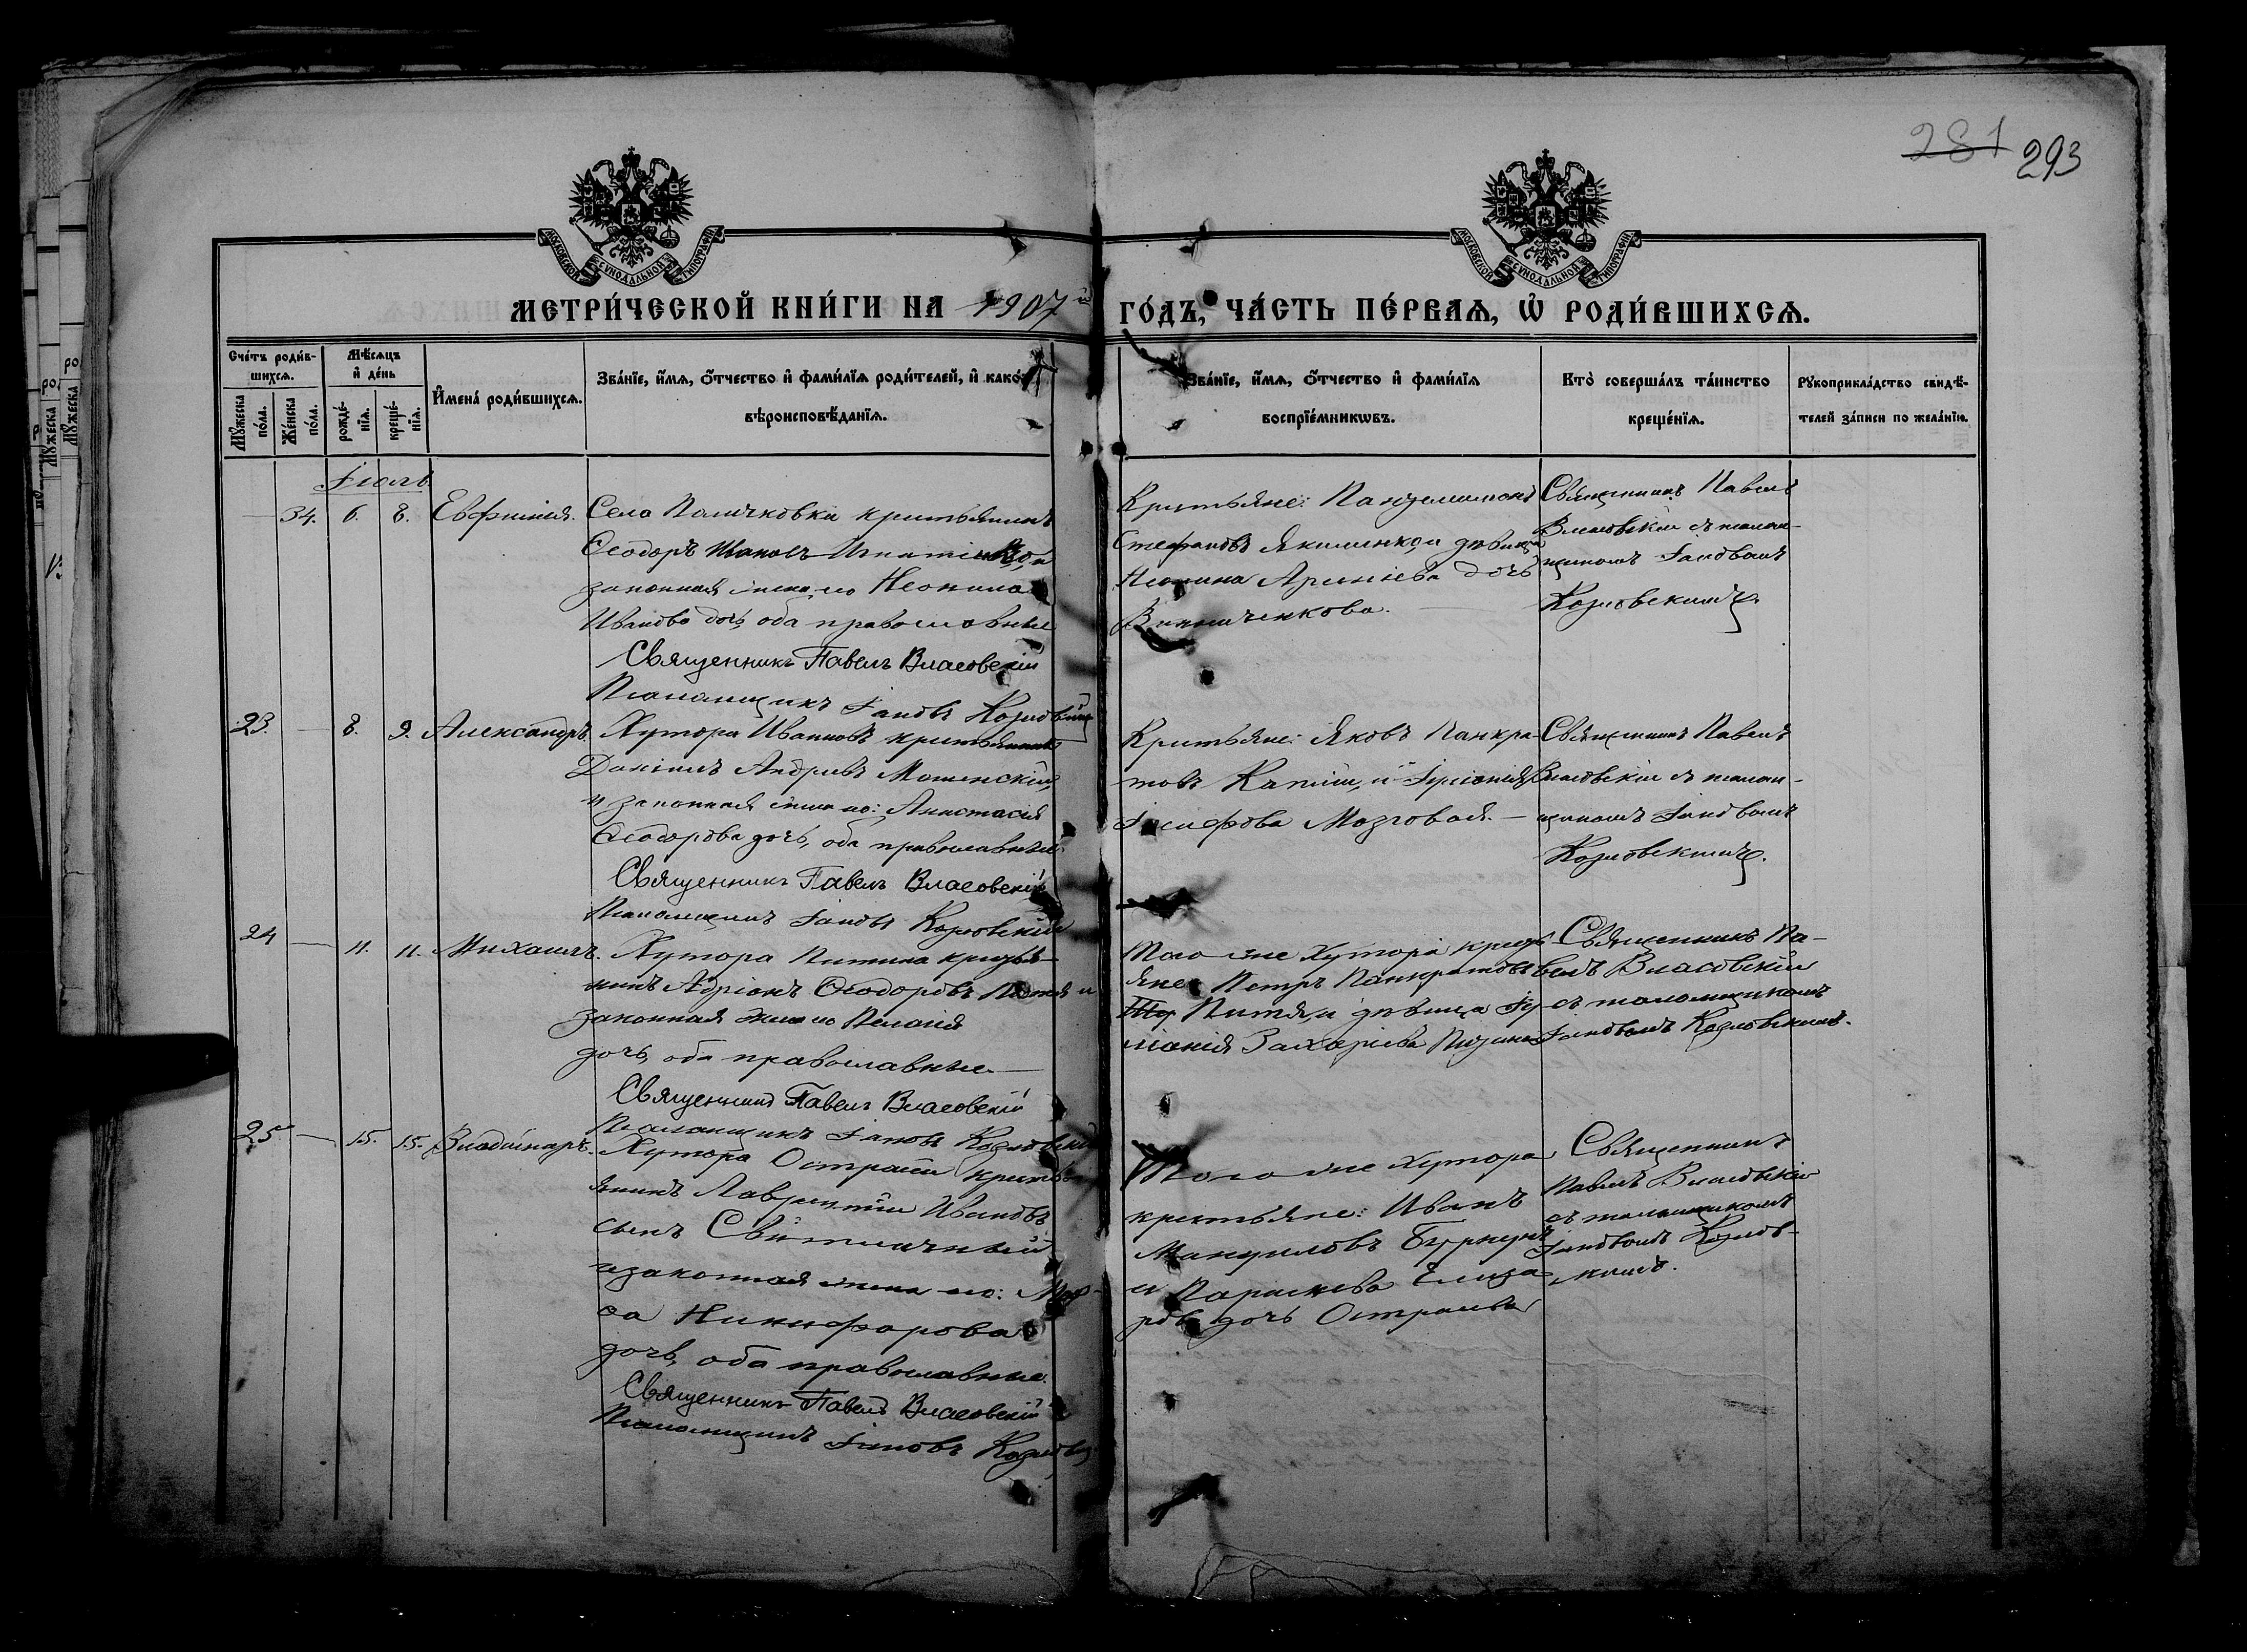 281 293
МОСКОВСКОЙ СѴНОДАЛЬНОЙ ТИПОГРАФІИ
МОСКОВСКОЙ СѴНОДАЛЬНОЙ ТИПОГРАФІИ
МЕТРИ́ЧЕСКОЙ КНИ́ГИ НА 1907й ГО́ДЪ, ЧА́СТЬ ПЕ́РВАѦ, Ѿ РОДИ́ВШИХСѦ.
Сче́тъ роди́в-
шихсѧ.
Мꙋ́жеска по́ла.
Же́нска по́ла.
Мѣ́сѧцъ
и҆ де́нь
рожде́-
нїѧ.
креще́-
нїѧ.
И҆мена̀ роди́вшихсѧ.
Зва́нїе, и҆́мѧ, ѻ҆́тчество и҆ фами́лїѧ роди́телей, и҆ како́гѡ
вѣроисповѣ́данїѧ.
Зва́нїе, и҆́мѧ, ѻ҆́тчество и҆ фами́лїѧ
воспрїе́мникѡвъ.
Кто̀ соверша́лъ та́инство
креще́нїѧ.
Рꙋкоприкла́дство свидѣ́-
телей за́писи по жела́нїю.
Іюль
34. 6. 8. Евфимія.
Села крестьянинъ
Ѳеодоръ Ивановъ и
законная жена его Неонила
Иванова дочь, оба православные
Священникъ Павелъ Власовскій
Псаломщикъ Іаковъ Козловскій
Крестьяне: Пантелимонъ
Стефановъ Якименко, и дѣвица
дочь
Винниченкова.
Священникъ Павелъ
Власовскій съ псалом-
щикомъ Іаковомъ
Козловскимъ.
23. — 8. 9. Александръ.
Хутора Иванковъ крестьянинъ
Даніилъ Андреевъ Мошенскій,
и законная жена его: Анастасія
Ѳеодорова дочь, оба православные.
Священникъ Павелъ Власовскій
Псаломщикъ Іаковъ Козловскій
Крестьяне: Яковъ Панкра-
товъ и
Іосифова Мозговая. —
Священникъ Павелъ
Власовскій съ псалом-
щикомъ Іаковомъ
Козловскимъ.
24 — 11. 11. Михаилъ.
Хутора крестья-
нинъ Адріонъ Ѳеодоровъ и
законная жена его Пелагія
дочь, оба православные. —
Священникъ Павелъ Власовскій
Псаломщикъ Іаковъ Козловскій
Того же Хутора кресть-
яне: Петръ Панкратовъ
и дѣвица
Захаріева
Священникъ Па-
велъ Власовскій
съ псаломщикомъ
Іаковомъ Козловскимъ.
25 — 15. 15. Владиміръ.
Хутора кресть-
янинъ Лаврентій Ивановъ
сынъ Свѣтличный
и законная жена его: Мар-
ѳа Никифорова
дочь, оба православные.
Священникъ Павелъ Власовскій
Псаломщикъ Іаковъ
Того же Хутора
крестьяне: Иванъ
Мануиловъ
и Параскева Елиза-
рова дочь
Священникъ
Павелъ Власовскій
съ псаломщикомъ
Іаковомъ Козлов-
скимъ.